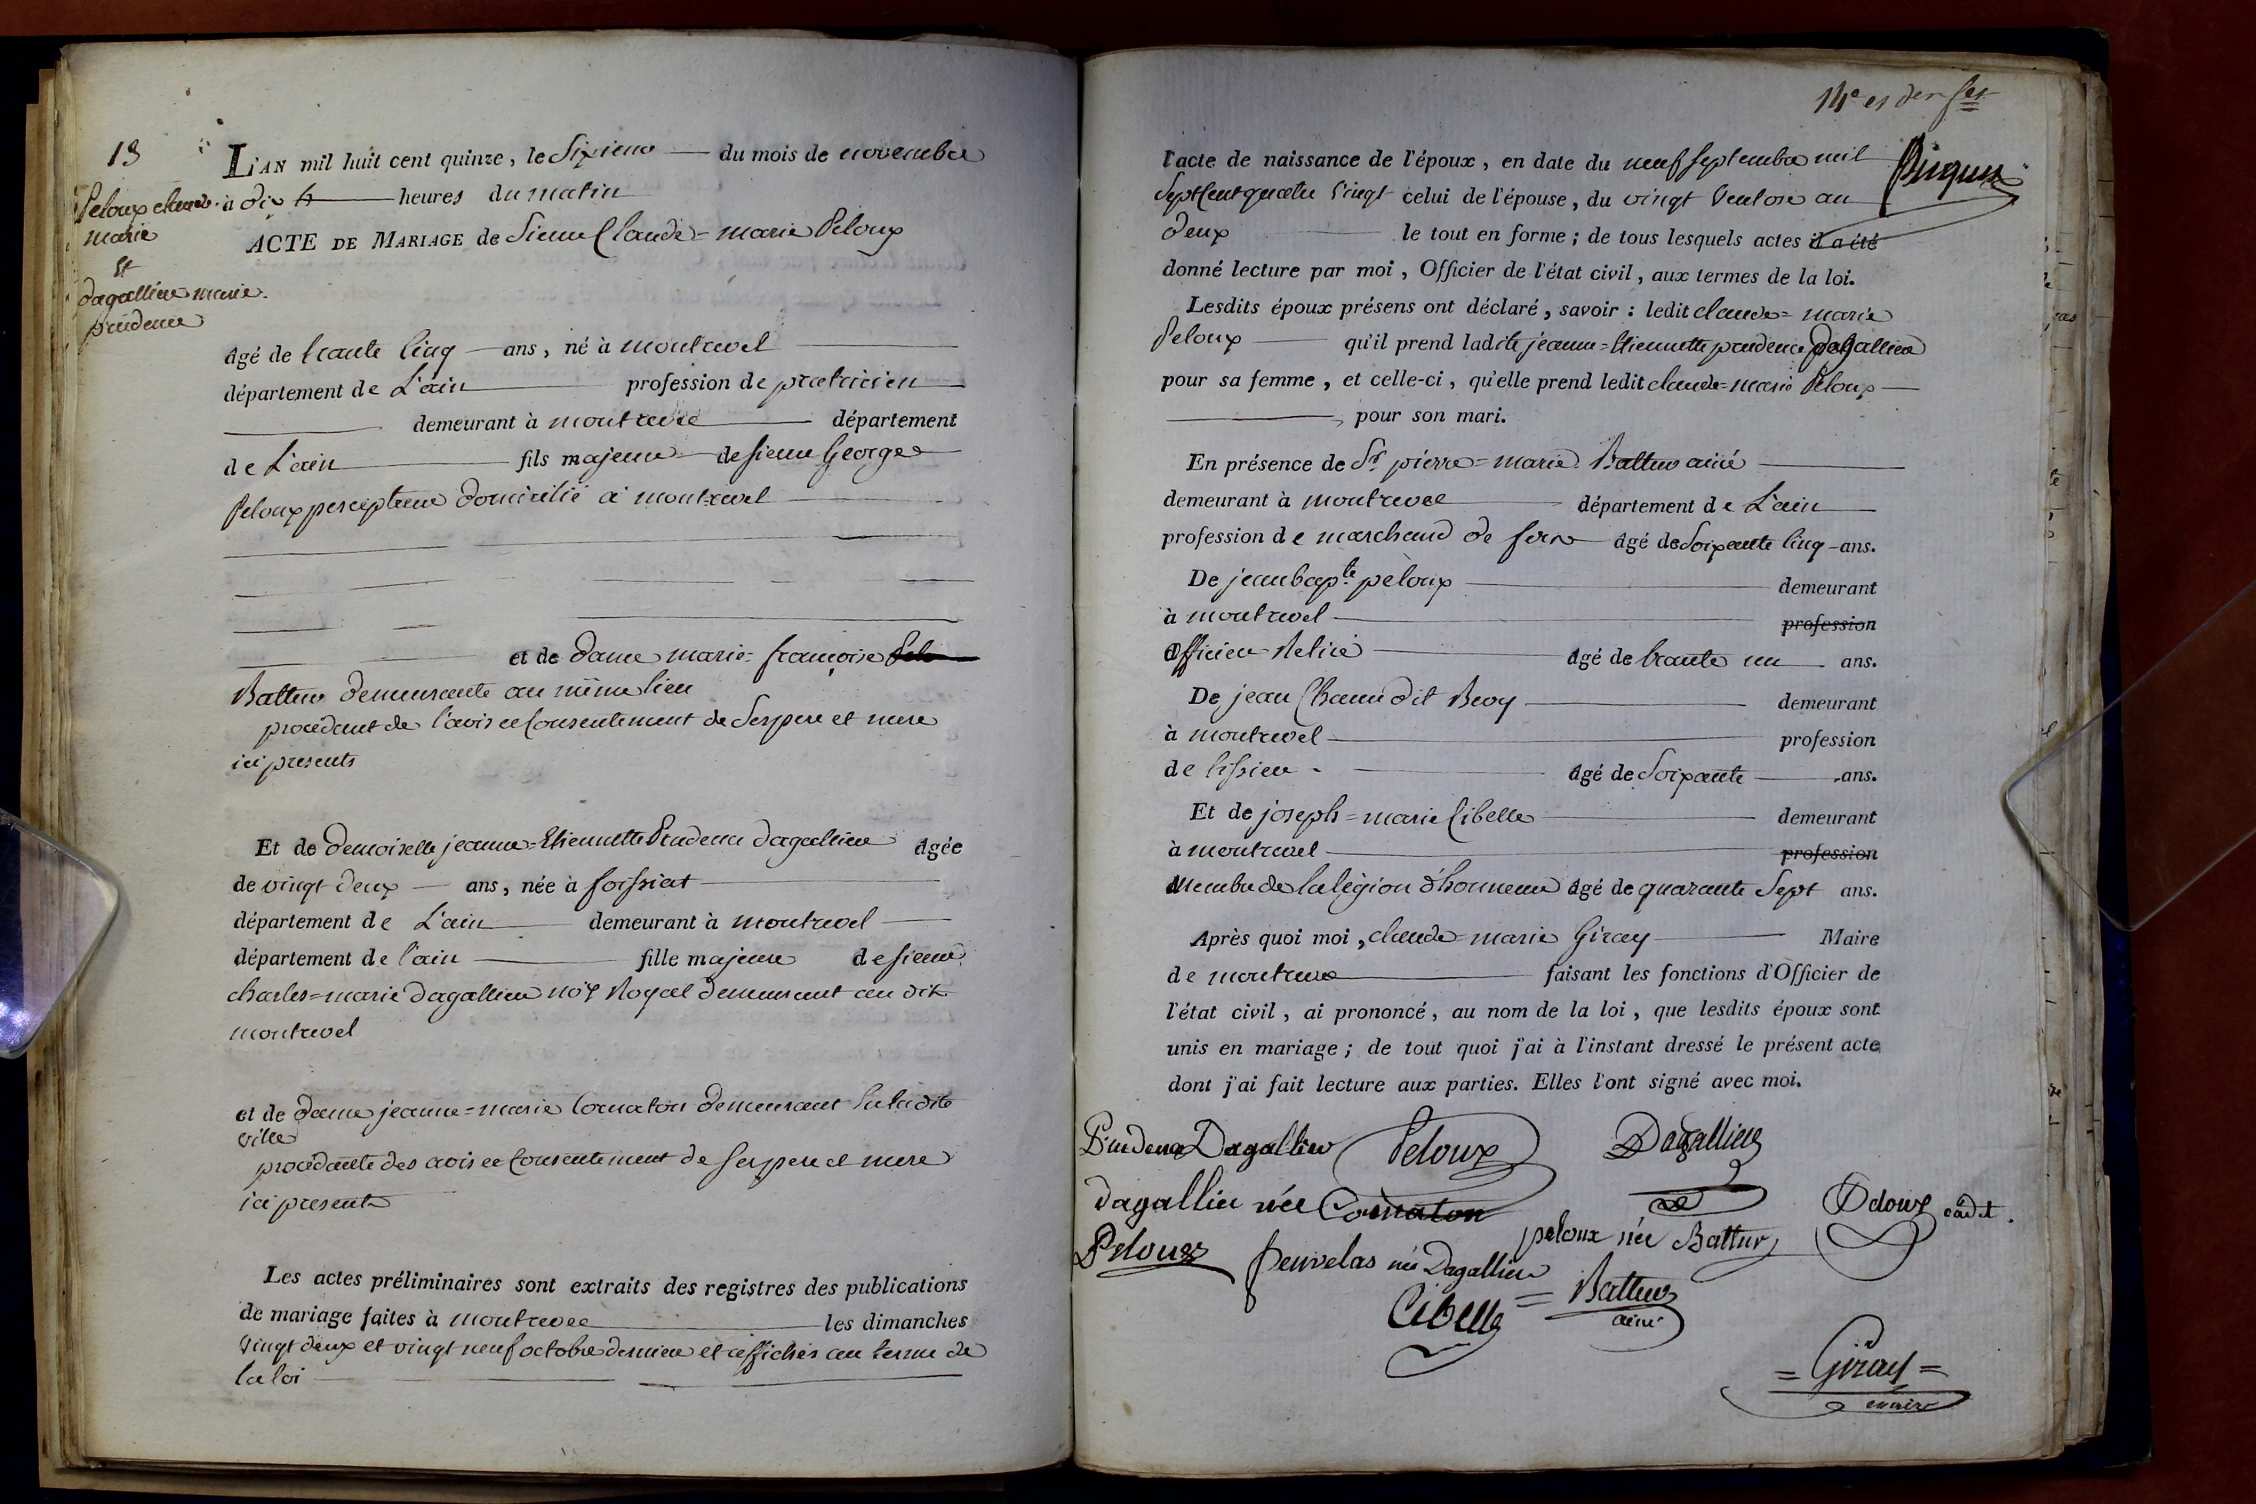 13
Peloux claude
marie
et
dagallier marie
prudence
L'AN mil huit cent quinze, le Sixieme du mois de novembre
à dix h heures du matin
ACTE DE MARIAGE de Sieur Claude=marie Peloux
âgé de trante cinq ans, né à montrevel
département de L'ain profession de praticien
demeurant à montrevel département
de L'ain fils majeur de sieur George
Peloux percepteur domicilié a montrevel
et de dame marie=françoise Pelo
Battur demeurante au même lieu
procédant de l'avis et Consentement de Ses pere et mere
ici presents
Et de demoiselle jeanne=Etiennette Prudence dagallier âgée
de vingt deux ans, née à foissiat
département de L'ain demeurant à montrevel
département de l'ain fille majeure de sieur
charles=marie dagallier no.re Royal demeurant au dit
montrevel
et de dame jeanne=marie Cornaton demeurant Susdite
ville
procedante des avis et Consentement de Ses pere et mere
ici presents
Les actes préliminaires sont extraits des registres des publications
de mariage faites à montrevel les dimanches
vingt deux et vingt neuf octobre dernier et affichés au terme de
la loi
14e et der fet
l'acte de naissance de l'époux, en date du neuf septembre mil
Sept Cent quatre vingt celui de l'épouse, du vingt Ventose an
deux le tout en forme; de tous lesquels actes il a été
donné lecture par moi, Officier de l'état civil, aux termes de la loi.
Lesdits époux présens ont déclaré, savoir: ledit claude=marie
Peloux qu'il prend ladite jeanne=Etiennette prudence dagallier
pour sa femme, et celle-ci, qu'elle prend ledit claude=marie Peloux
pour son mari.
En présence de Sr pierre=marie Battur ainé
demeurant à montrevel département de L'ain
profession de marchand de fer âgé de Soixante cinq ans.
De jean bapte peloux demeurant
à montrevel profession
officier Retiré âgé de trante un ans.
De jean Chanu dit Broy demeurant
à montrevel profession
de tissier âgé de Soixante ans.
Et de joseph=marie Cibelle demeurant
à montrevel profession
Membre de la légion d'honneur âgé de quarante Sept ans.
Après quoi moi, claude=marie Giray Maire
de montrevel faisant les fonctions d'Officier de
l'état civil, ai prononcé, au nom de la loi, que lesdits époux sont
unis en mariage; de tout quoi j'ai à l'instant dressé le présent acte
dont j'ai fait lecture aux parties. Elles l'ont signé avec moi.
Prudence Dagallier Peloux Dagallier
dagallier née Cornaton Peloux cadet.
Peloux peloux née Battur
née Dagallier
Cibelle = Battur
ainé
= Giray =
maire